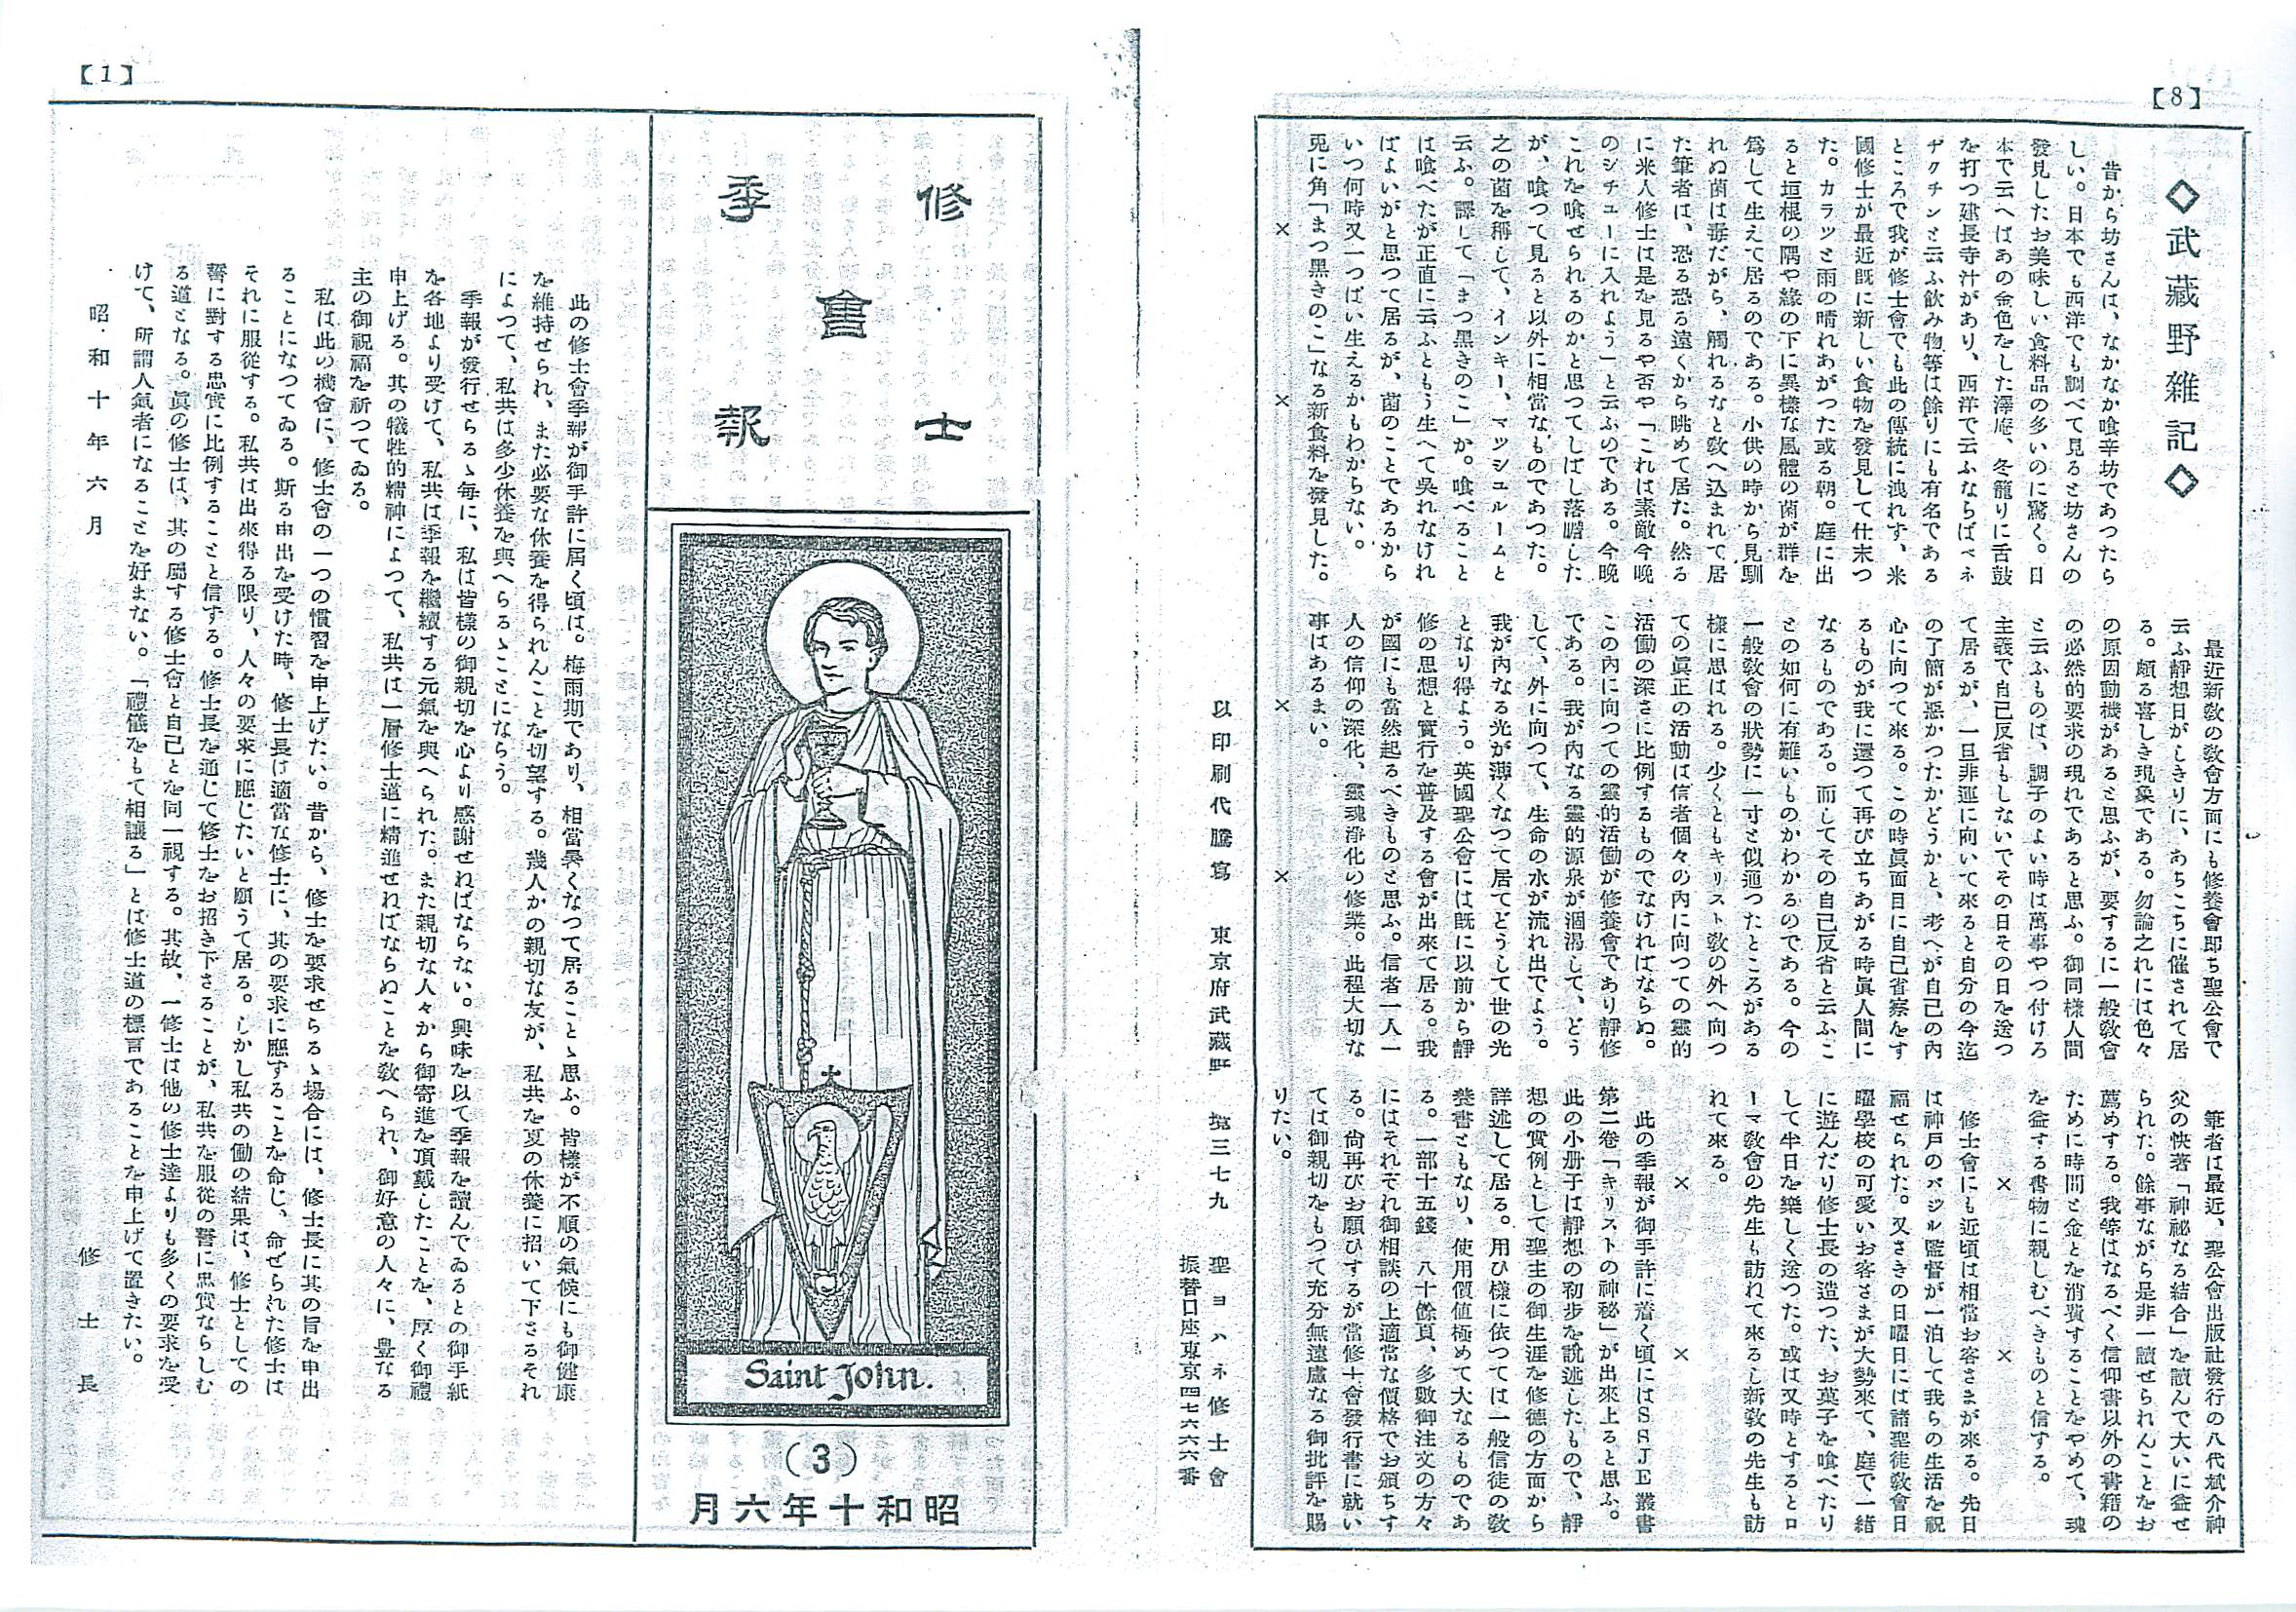 【8】
◇武藏野雜記◇
昔から坊さんは、なかなか喰辛坊であつたら
しい。日本でも西洋でも調べて見ると坊さんの
發見したお美味しい食料品の多いのに驚く。日
本で云へばあの金色をした澤庵、冬籠りに舌鼓
を打つ建長寺汁があり、西洋で云ふならばベネ
ヂクチンと云ふ飲み物等は餘りにも有名である
ところで我が修士會でも此の傳統に洩れず、米
國修士が最近既に新しい食物を發見して仕末つ
た。カラッと雨の晴れあがつた或る朝。庭に出
ると垣根の隅や緣の下に異樣な風體の菌が群を
爲して生えて居るのである。小供の時から見馴
れぬ菌は毒だから、觸れるなと敎へ込まれて居
た筆者は、恐る恐る遠くから眺めて居た。然る
に米人修士は是を見るや否や「これは素敵今晩
のシチューに入れよう」と云ふのである。今晩
これを喰せられるのかと思つてしばし落膽した
が、喰つて見ると以外に相當なものであつた。
之の菌を稱して、インキー、マツシュルームと
云ふ。譯して「まつ黑きのこ」か。喰べること
は喰べたが正直に云ふともう生へて吳れなけれ
ばよいがと思つて居るが、菌のことであるから
いつ何時又一つぱい生えるかもわからない。
兎に角「まつ黑きのこ」なる新食料を發見した。
× × × ×
最近新敎の敎會方面にも修養會卽ち聖公會で
云ふ靜想日がしきりに、あちこちに催されて居
る。頗る喜しき現象である。勿論之れには色々
の原因動機があると思ふが、要するに一般敎會
の必然的要求の現れであると思ふ。御同樣人間
と云ふものは、調子のよい時は萬事やつ付けろ
主義で自己反省もしないでその日その日を送つ
て居るが、一旦非運に向いて來ると自分の今迄
の了簡が惡かつたかどうかと、考へが自己の內
心に向つて來る。この時眞面目に自己省察をす
るものが我に還つて再び立ちあがる時眞人間に
なるものである。而してその自己反省と云ふこ
との如何に有難いものかわかるのである。今の
一般敎會の狀勢に一寸と似通つたところがある
樣に思ばれる。少くともキリスト敎の外へ向つ
ての眞正の活動は信者個々の內に向つての靈的
活働の深さに比例するものでなければならぬ。
この內に向つての靈的活働が修養會であり靜修
である。我が內なる靈的源泉が涸渴して、どう
して、外に向つて、生命の水が流れ出でよう。
我が內なる光が薄くなつて居てどうして世の光
となり得よう。英國聖公會には旣に以前から靜
修の思想と實行を普及する會が出來て居る。我
が國にも當然起るべきものと思ふ。信者一人一
人の信仰の深化、靈魂淨化の修業。此程大切な
事はあるまい。
筆者は最近、聖公會出版社發行の八代斌介神
父の快著「神祕なる結合」を讀んで大いに益せ
られた。餘事ながら是非一讀せられんことをお
薦めする。我等はなるべく信仰書以外の書籍の
ために時間と金とを消費することをやめて、魂
を益する書物に親しむべきものと信する。
× ×
修士會にも近頃は相當お客さまが來る。先日
は神戶のバジル監督が一泊して我らの生活を祝
福せられた。又さきの日曜日には諸聖徒敎會日
曜學校の可愛いお客さまが大勢來て、庭で一緖
に遊んだり修士長の造つた、お菓子を喰べたり
して半日を樂しく送つた。或は又時とするとロ
ーマ敎會の先生も訪れて來るし新敎の先生も訪
れて來る。
× ×
此の季報が御手許に着く頃にはSSJE叢書
第二卷「キリストの神祕」が出來上ると思ふ。
此の小册子は靜想の初步を說述したもので、靜
想の實例として聖主の御生涯を修德の方面から
詳述して居る。用ひ樣に依つては一般信徒の敎
養書ともなり、使用價値極めて大なるものであ
る。一部十五錢 八十餘頁、多數御注文の方々
にはそれぞれ御相談の上適當な價格でお頒ちす
る。尙再びお願ひするが當修士會發行書に就い
ては御親切をもつて充分無遠慮なる御批評を賜
りたい。
以印刷代謄寫 東京府武藏野 境三七九 聖ヨハネ修士會
振替口座東京四七六六六番
【1】
修士
會
季報
Saint John.
(3)
昭和十年六月
此の修士會季報が御手許に屆く頃は。梅雨期であり、相當暑くなつて居ることゝ思ふ。皆樣が不順の氣候にも御健康
を維持せられ、また必要な休養を得られんことを切望する。幾人かの親切な友が、私共を夏の休養に招いて下さるそれ
によつて、私共は多少休養を與へらるゝことにならう。
季報が發行せらるゝ每に、私は皆樣の御親切を心より感謝せればならない。興味を以て季報を讀んでゐるとの御手紙
を各地より受けて、私共は季報を繼續する元氣を與へられた。また親切な人々から御寄進を頂戴したことを、厚く御禮
申上げる。其の犧牲的精神によつて、私共は一層修士道に精進せればならぬことを敎へられ、御好意の人々に、豐なる
主の御祝福を祈つてゐる。
私は此の機會に、修士會の一つの慣習を申上げたい。昔から、修士を要求せらるゝ場合には、修士長に其の旨を申出
ることになつてゐる。斯る申出を受けた時、修士長は適當な修士に、其の要求に應することを命じ、命ぜられた修士は
それに服從する。私共は出來得る限り、人々の要求に應じたいと願うて居る。しかし私共の働の結果は、修士としての
誓に對する忠實に比例することと信する。修士長を通じて修士をお招き下さることが、私共を服從の誓に忠實ならしむ
る道となる。眞の修士は、其の屬する修士會と自己とを同一視する。其故、一修士は他の修士達よりも多くの要求を受
けて、所謂人氣者になることを好まない。「禮儀をもて相讓る」とは修士道の標言であることを申上げて置きたい。
昭和十年六月
修士長